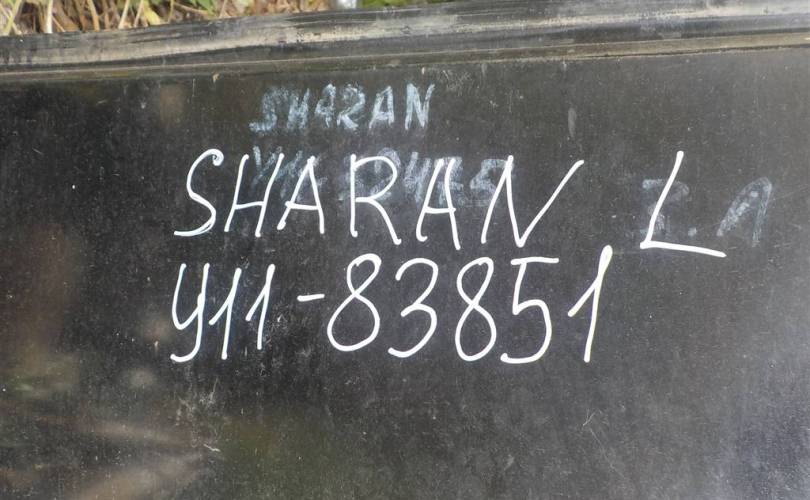 SHARAN
SHARAN L
У11-83851